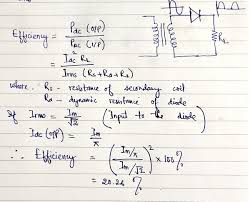 Efficiency = Pdc (o/p)
Pac (i/p)
= Idc² RL
Irms (Rs+Rd+RL)
RL
where, Rs - resistance of secondary coil
Rd - dynamic resistance of diode
If Irms = Im/√2 (Input to the diode)
Idc (o/p) = Im/π
∴ Efficiency = (Im/π / Im/√2)² × 100 %
= 20.24 %